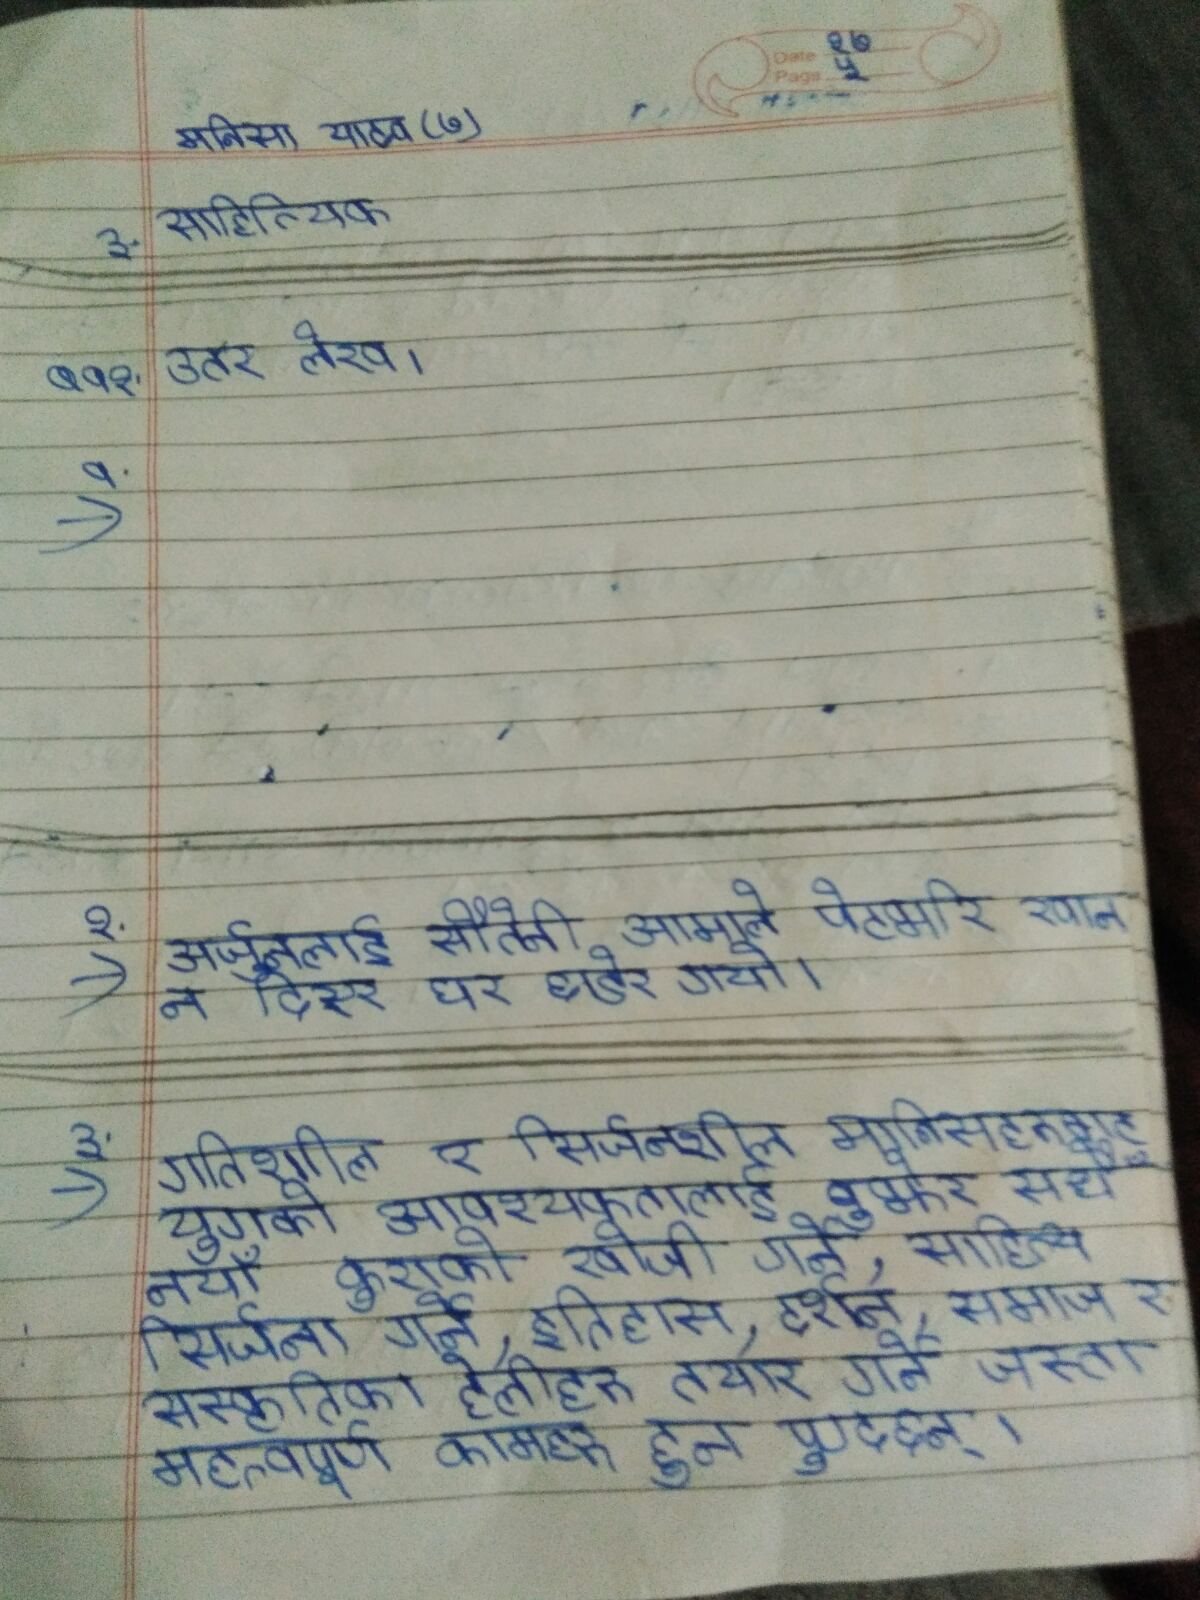 Date २७
Page ५
मनिसा यादव (७)
३. साहित्यिक
उतर लेख।
१.
२. अर्जुनलाई सौतेनी आमाले पेटभरि खान
न दिएर घर छाडेर गयो।
३. गतिशील र सिर्जनशील मानिसहरूबाट
युगको आवश्यकतालाई बुझेर सधैं
नयाँ कुराको खोजी गर्ने, साहित्य
सिर्जना गर्ने, इतिहास, दर्शन, समाज र
संस्कृतिका हेलीहरू तयार गर्ने जस्ता
महत्वपूर्ण कामहरू हुन